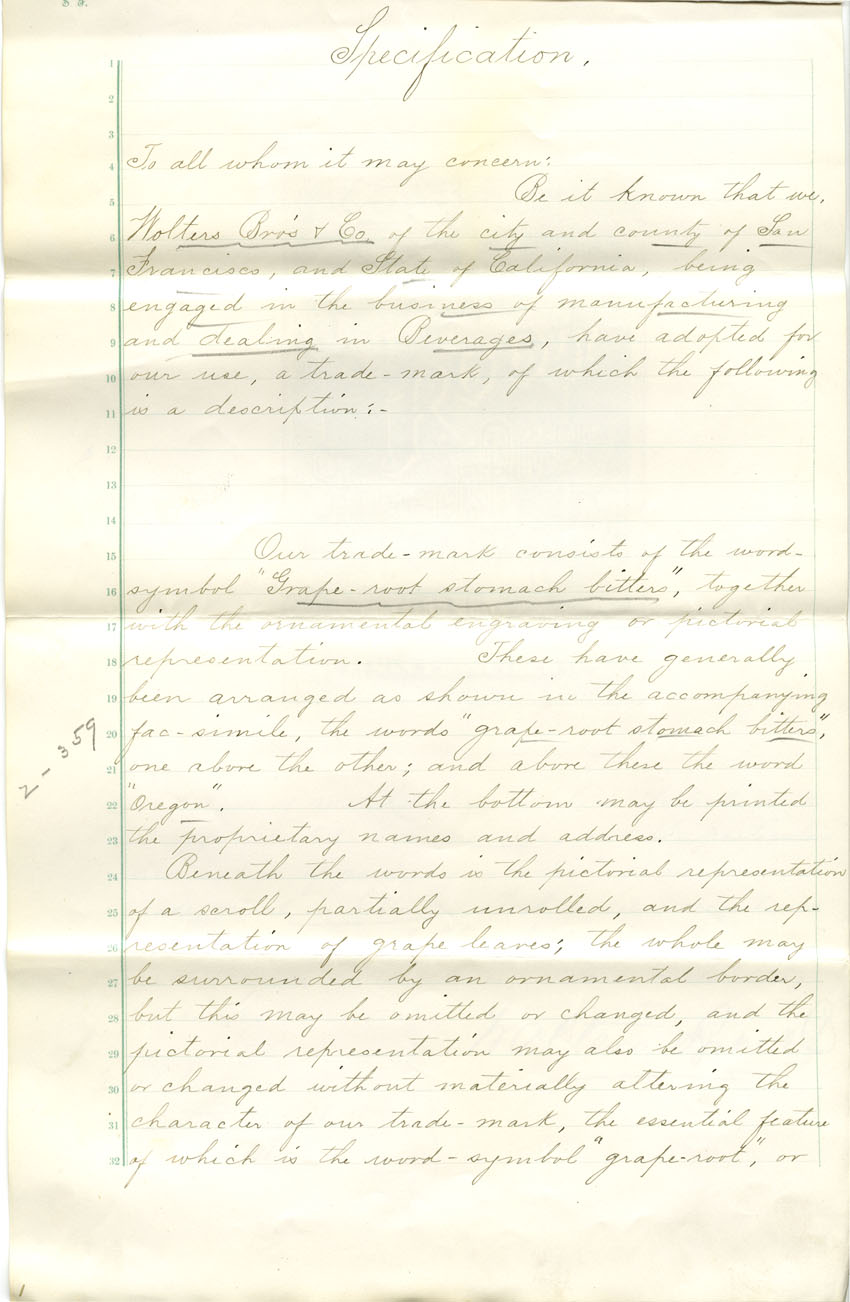 Specification.
To all whom it may concern:
Be it known that we,
Wolters Bro's & Co. of the city and county of San
Francisco, and State of California, being
engaged in the business of manufacturing
and dealing in Beverages, have adopted for
our use, a trade-mark, of which the following
is a description:-
Our trade-mark consists of the word-
symbol "Grape-root stomach bitters", together
with the ornamental engraving or pictorial
representation. These have generally
been arranged as shown in the accompanying
fac-simile, the words "grape-root stomach bitters",
one above the other; and above these the word
"Oregon". At the bottom may be printed
the proprietary names and address.
Beneath the words is the pictorial representation
of a scroll, partially unrolled, and the rep-
resentation of grape leaves; the whole may
be surrounded by an ornamental border,
but this may be omitted or changed, and the
pictorial representation may also be omitted
or changed without materially altering the
character of our trade-mark, the essential feature
of which is the word-symbol "grape-root", or
2-359
1
2
3
4
5
6
7
8
9
10
11
12
13
14
15
16
17
18
19
20
21
22
23
24
25
26
27
28
29
30
31
32